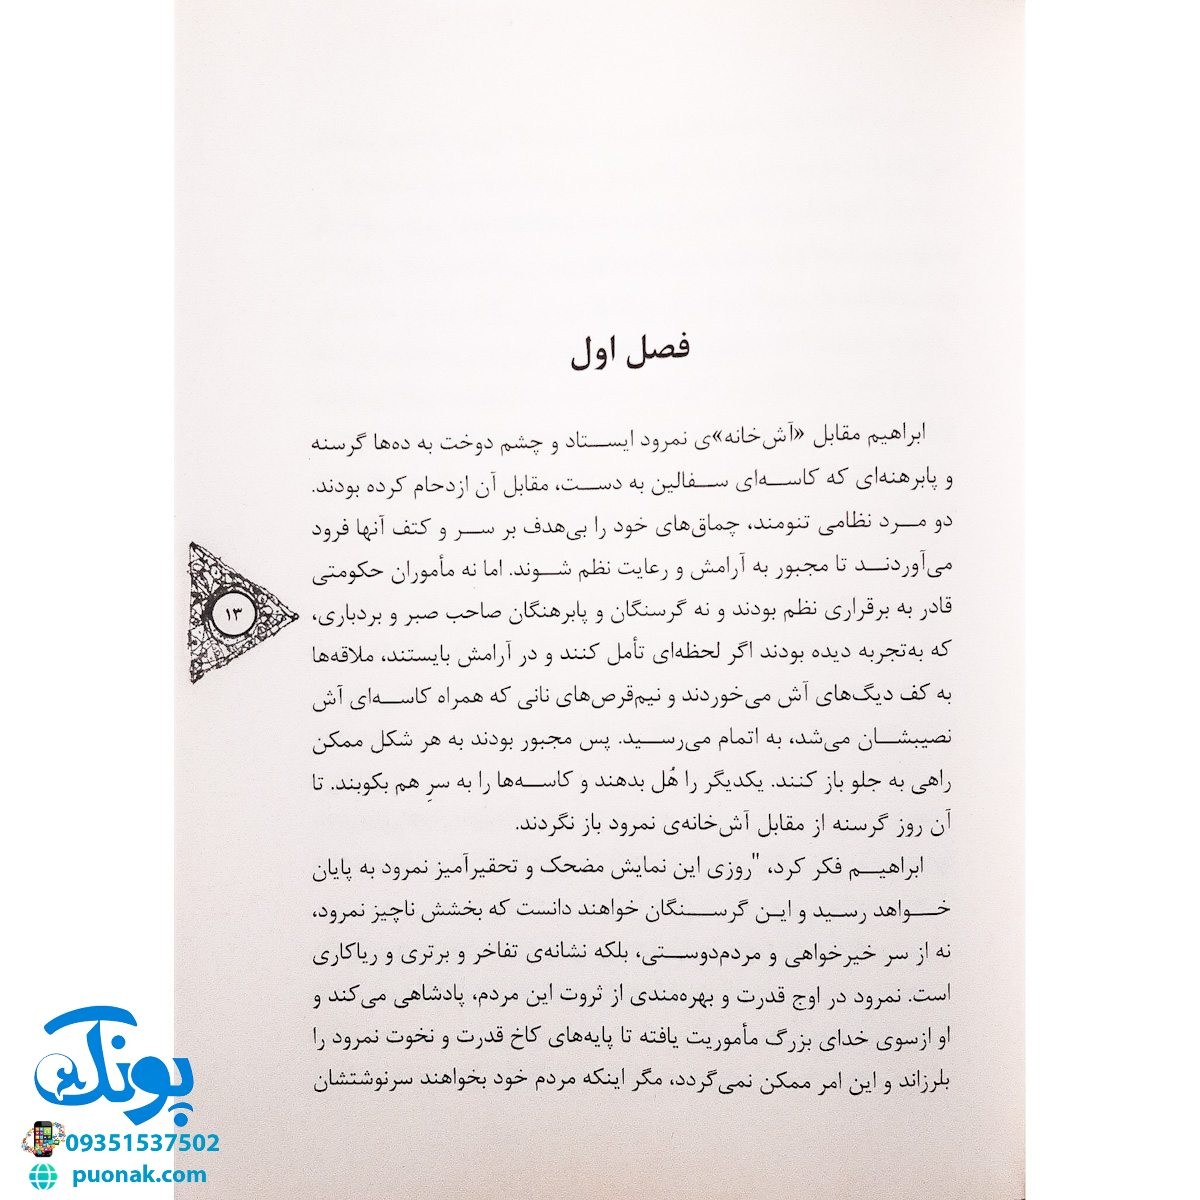 فصل اول
ابراهیم مقابل «آش‌خانه»ی نمرود ایستاد و چشم دوخت به ده‌ها گرسنه
و پابرهنه‌ای که کاسه‌ای سفالین به دست، مقابل آن ازدحام کرده بودند.
دو مرد نظامی تنومند، چماق‌های خود را بی‌هدف بر سر و کتف آنها فرود
می‌آوردند تا مجبور به آرامش و رعایت نظم شوند. اما نه مأموران حکومتی
قادر به برقراری نظم بودند و نه گرسنگان و پابرهنگان صاحب صبر و بردباری،
که به‌تجربه دیده بودند اگر لحظه‌ای تأمل کنند و در آرامش بایستند، ملاقه‌ها
به کف دیگ‌های آش می‌خوردند و نیم‌قرص‌های نانی که همراه کاسه‌ای آش
نصیبشان می‌شد، به اتمام می‌رسید. پس مجبور بودند به هر شکل ممکن
راهی به جلو باز کنند. یکدیگر را هُل بدهند و کاسه‌ها را به سرِ هم بکوبند. تا
آن روز گرسنه از مقابل آش‌خانه‌ی نمرود باز نگردند.
ابراهیم فکر کرد، "روزی این نمایش مضحک و تحقیرآمیز نمرود به پایان
خواهد رسید و این گرسنگان خواهند دانست که بخشش ناچیز نمرود،
نه از سر خیرخواهی و مردم‌دوستی، بلکه نشانه‌ی تفاخر و برتری و ریاکاری
است. نمرود در اوج قدرت و بهره‌مندی از ثروت این مردم، پادشاهی می‌کند و
او ازسوی خدای بزرگ مأموریت یافته تا پایه‌های کاخ قدرت و نخوت نمرود را
بلرزاند و این امر ممکن نمی‌گردد، مگر اینکه مردم خود بخواهند سرنوشتشان
۱۳
پونک
09351537502
puonak.com